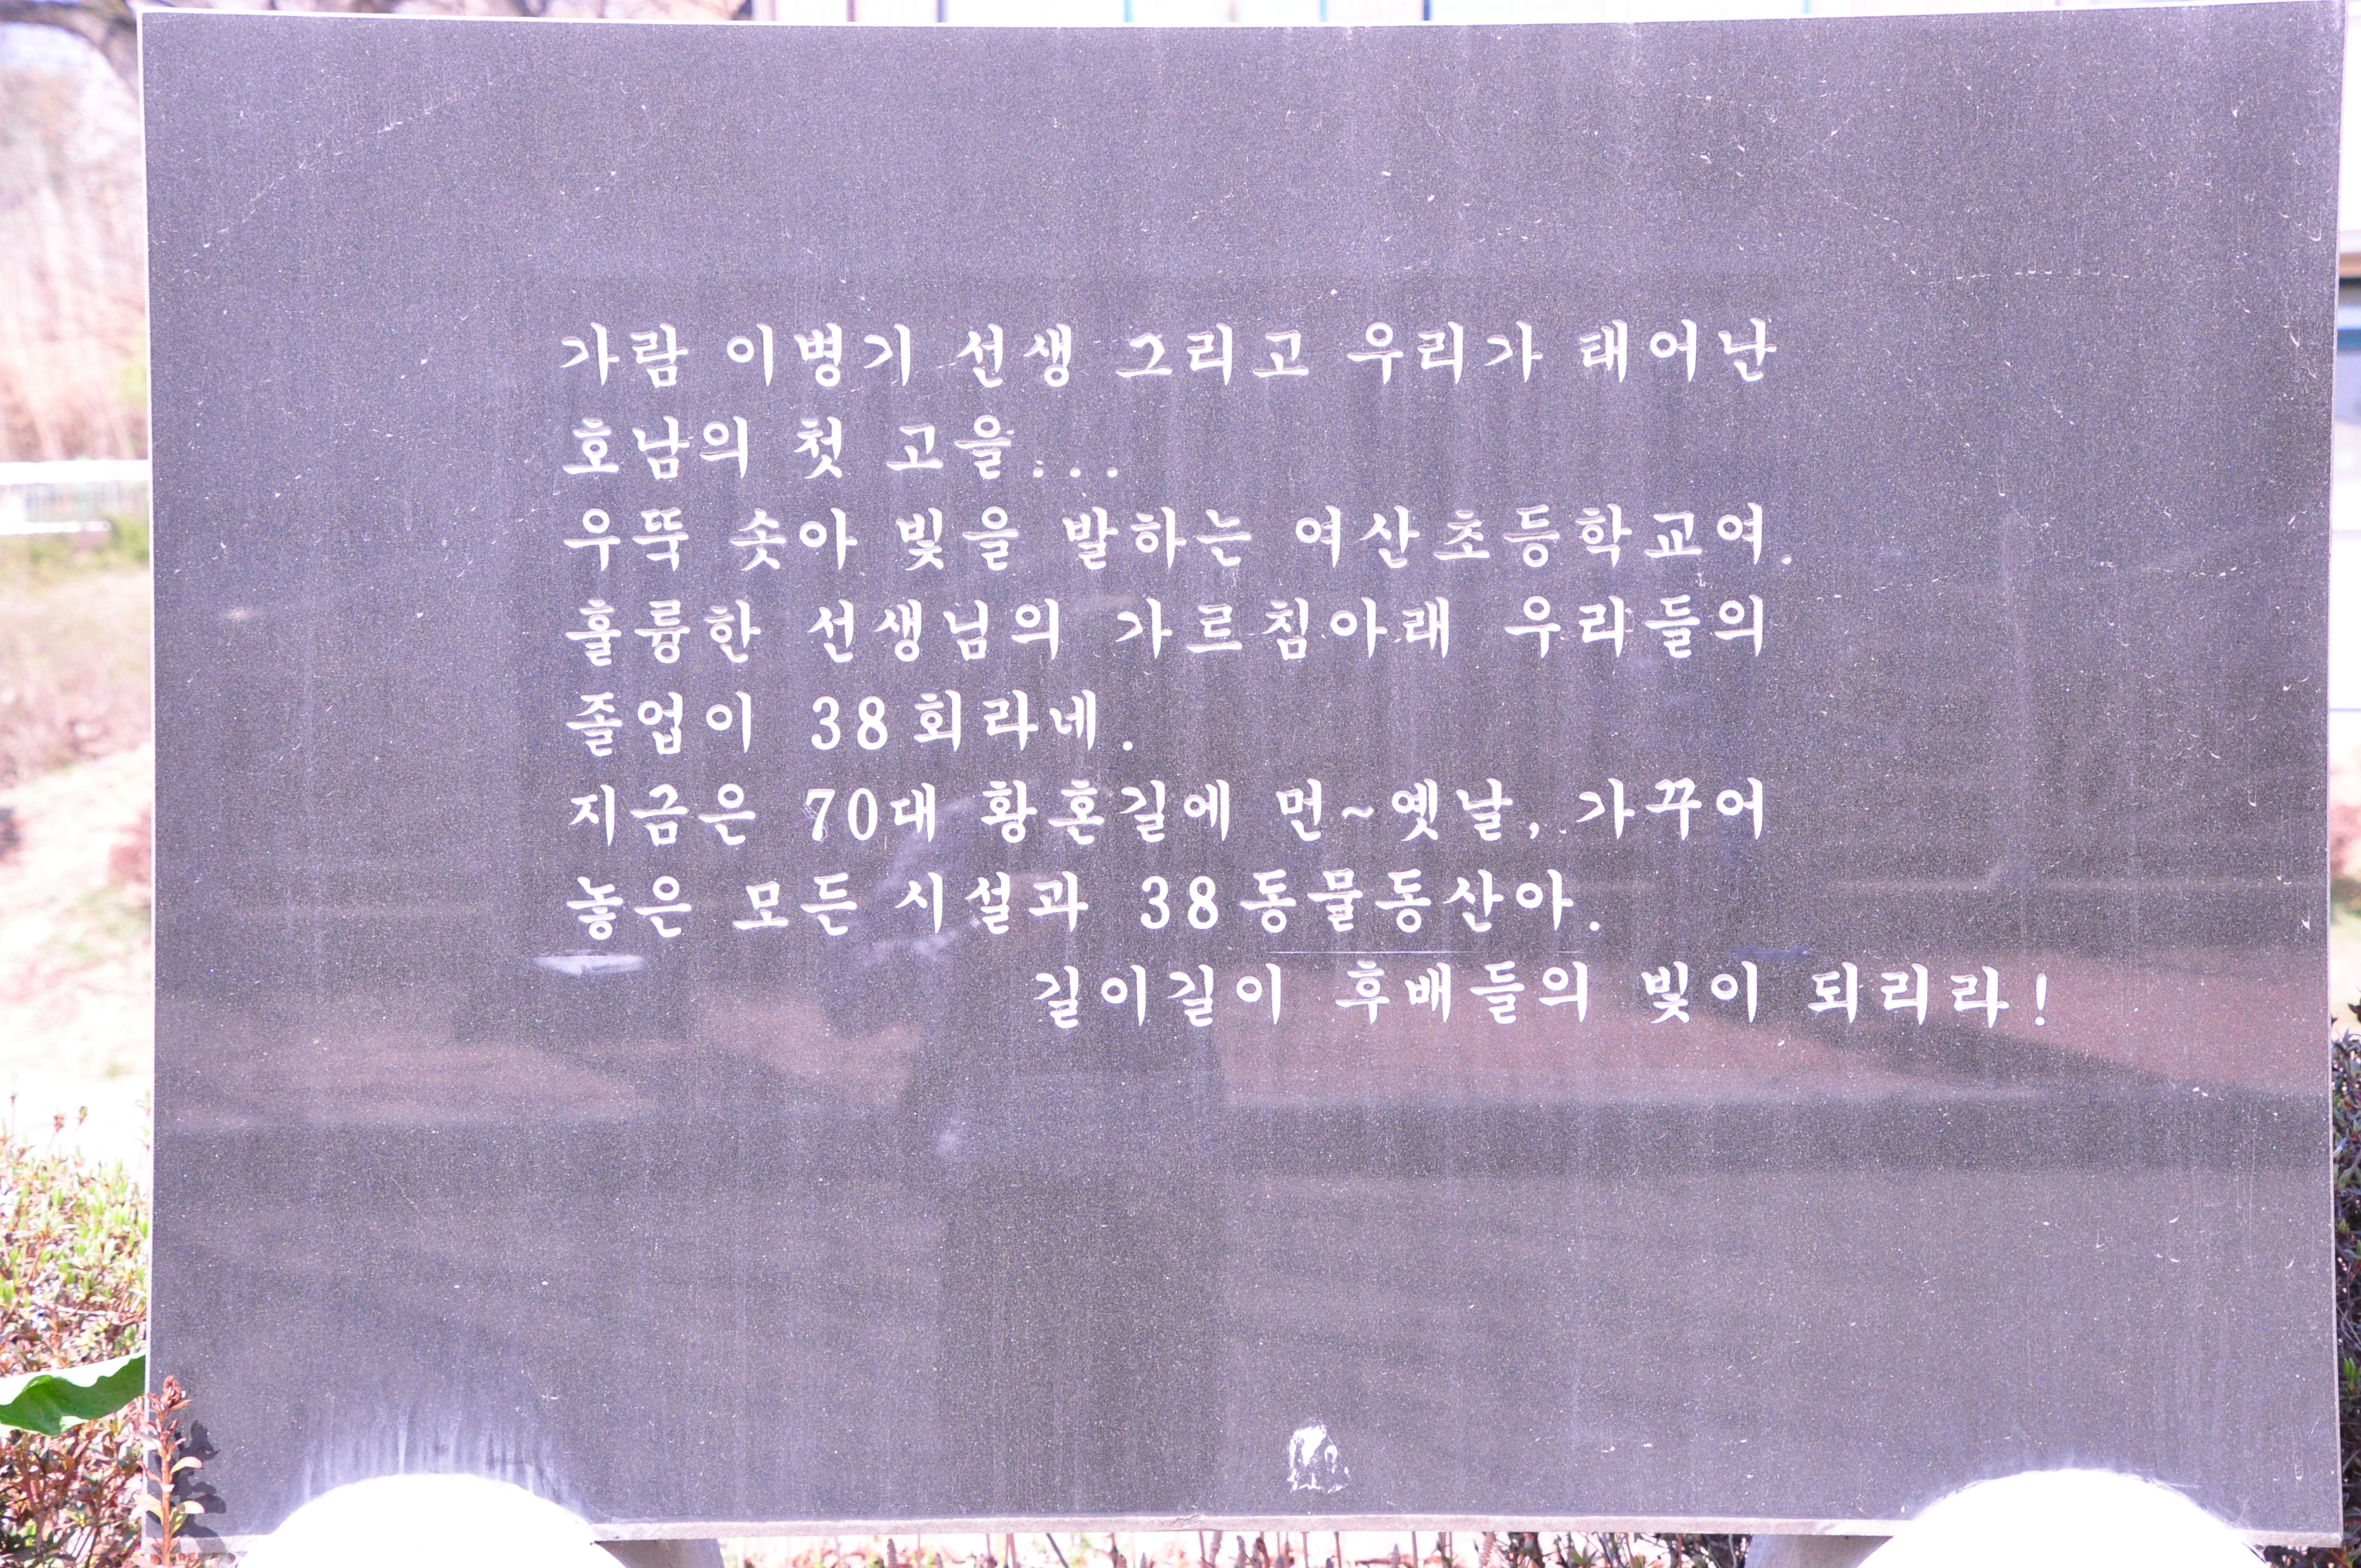 가람 이병기 선생 그리고 우리가 태어난
호남의 첫 고을...
우뚝 솟아 빛을 발하는 여산초등학교여.
훌륭한 선생님의 가르침아래 우리들의
졸업이 38회라네.
지금은 70대 황혼길에 먼~옛날, 가꾸어
놓은 모든 시설과 38동물동산아.
길이길이 후배들의 빛이 되리라!